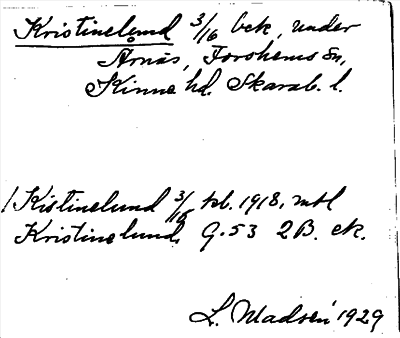 Kristinelund 3/16 bck, under
Årnäs, Forshems sn,
Kinne hd. Skarab. l.
1 Kistinelund 3/16 tb. 1918, mtl
Kristinelund. G. 53 2B. ek.
L. Madsén 1929